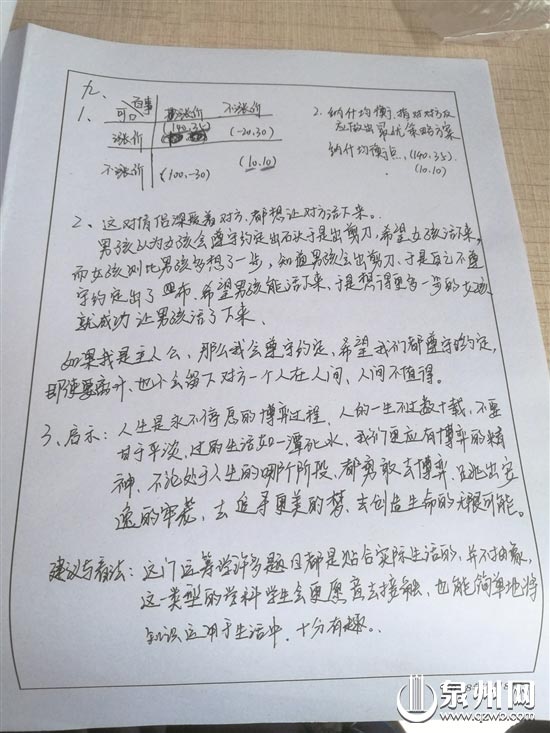 九、
1、
百事
可口
涨价 不涨价
涨价 (140,35) (-20,30)
不涨价 (100,-30) (10,10)
2、纳什均衡,指对对方反
应做出最优策略方案
纳什均衡点:(140,35)、
(10,10)
2、这对情侣深爱着对方,都想让对方活下来。
男孩以为女孩会遵守约定出石头于是出剪刀,希望女孩活下来,
而女孩则比男孩多想了一步,知道男孩会出剪刀,于是自己不遵
守约定出了布,希望男孩能活下来,于是想得更多一步的女孩
就成功让男孩活了下来、
如果我是主人公,那么我会遵守约定,希望我们都遵守约定,
即使要离开,也不会留下对方一个人在人间,人间不值得。
3、启示:人生是永不停息的博弈过程,人的一生不过数十载,不要
甘于平淡,过的生活如一潭死水,我们更应有博弈的精
神,不论处于人生的哪个阶段,都勇敢去博弈,跳出安
逸的牢笼,去追寻更美的梦,去创造生命的无限可能。
建议与看法:这门运筹学许多题目都是贴合实际生活的,并不抽象,
这一类型的学科学生会更愿意去接触,也能简单地将
知识运用于生活中,十分有趣。
泉州网
www.qzwb.com